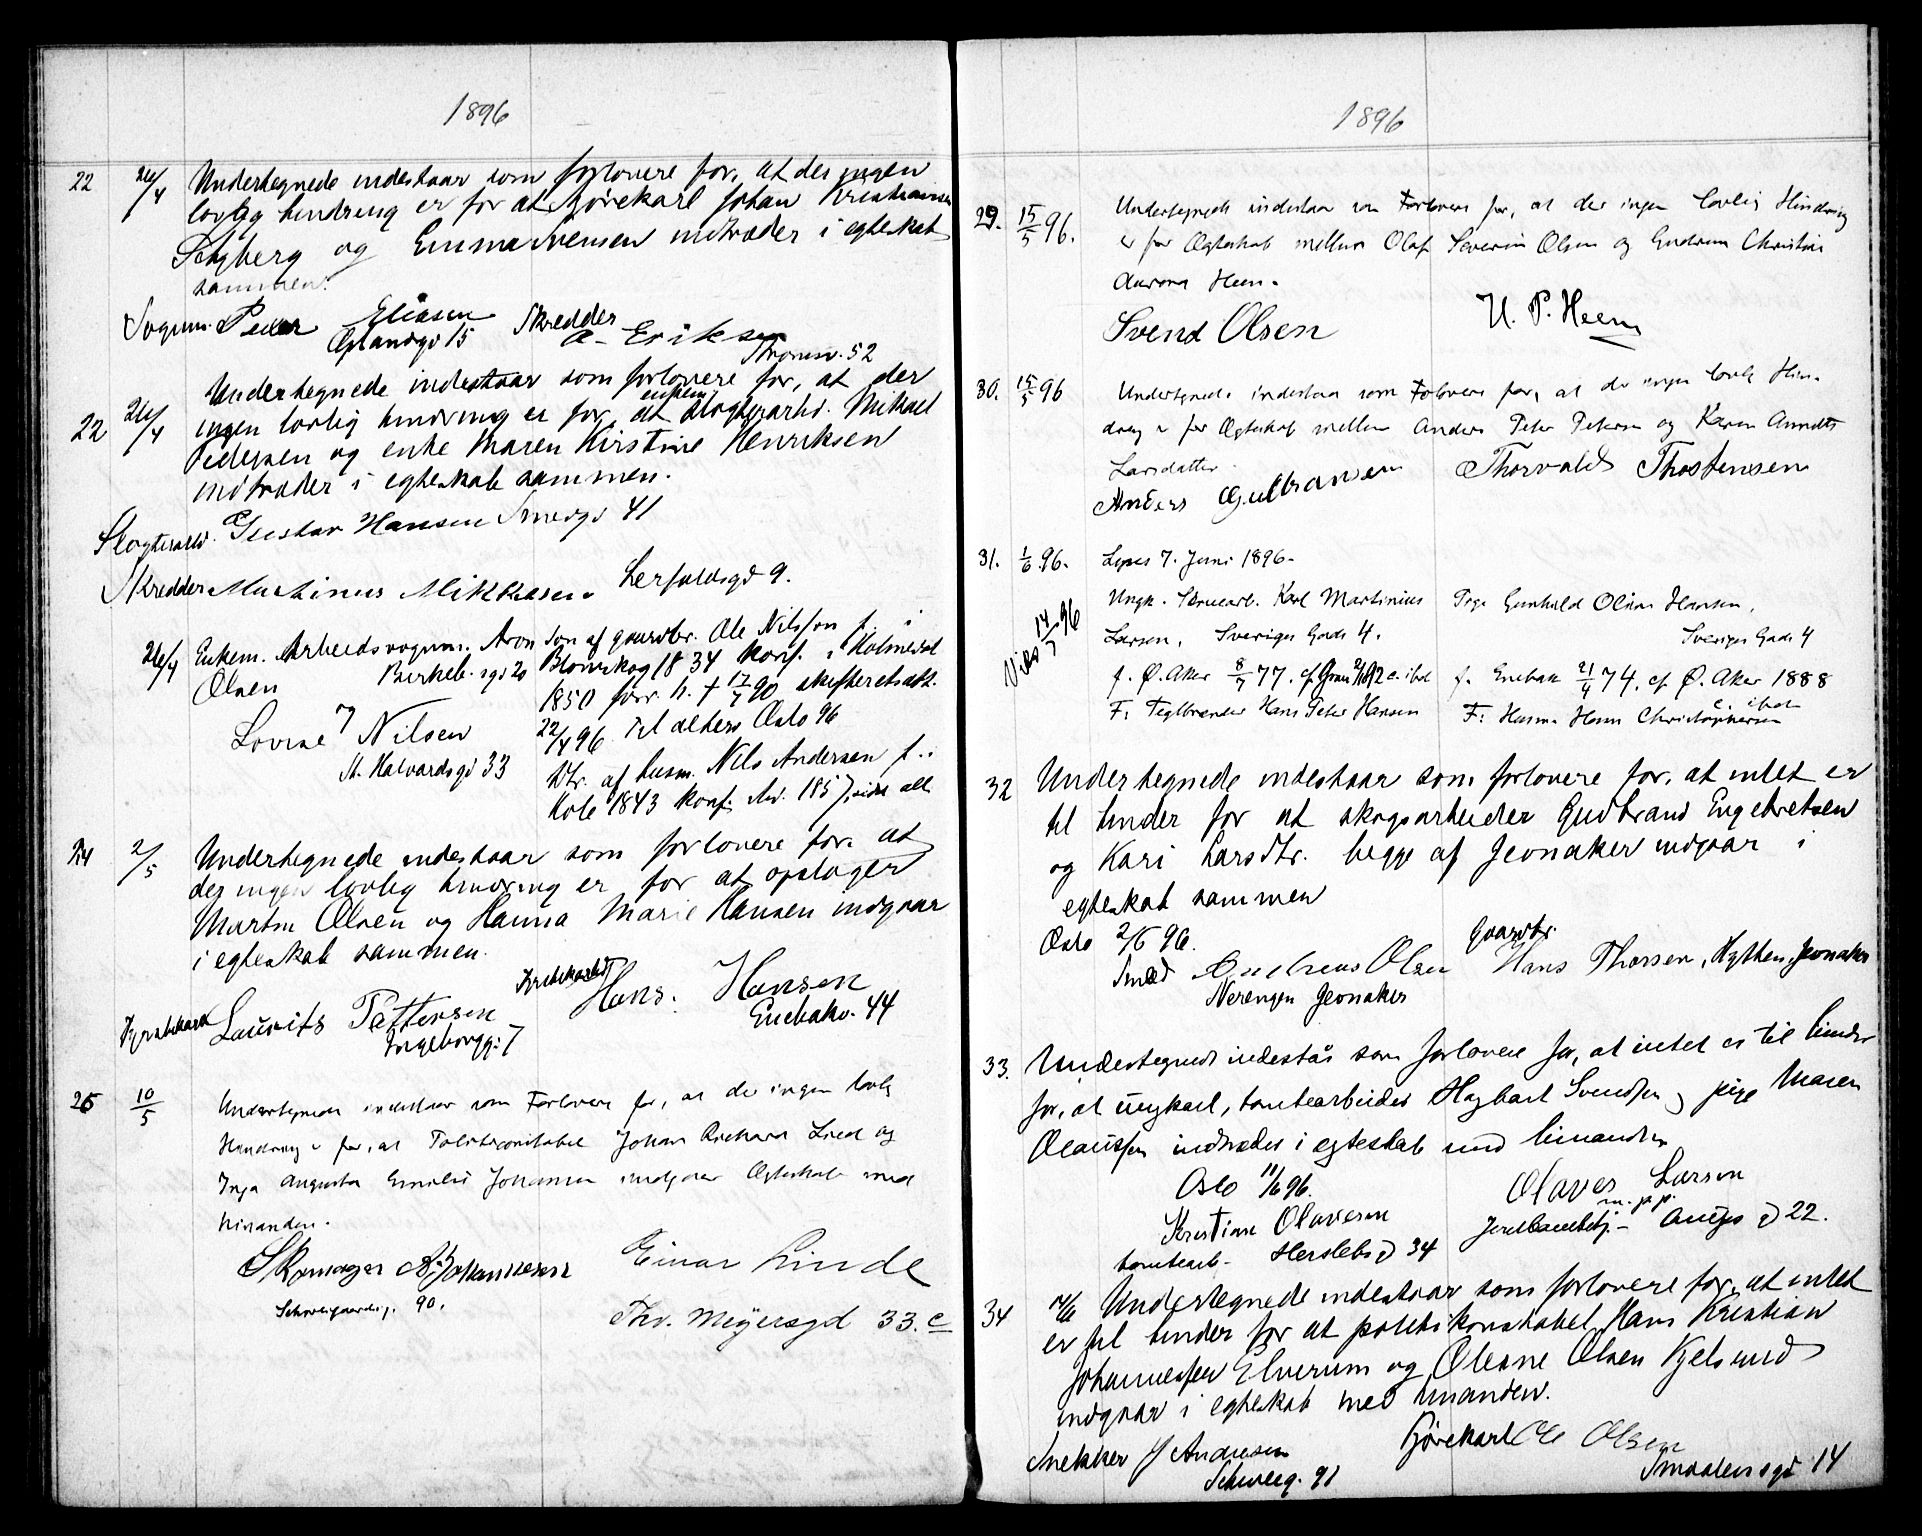 1896
22 26/4 Undertegnede indestaar som forlovere for, at der ingen
lovlig hindring er for at kjørekarl Johan Kristiansen
Schyberg og Emma Svensen indtræder i egteskab
sammen.
Vognm. Peder Eliasen Skredder A. Eriksen
Grønlandsgd 15 Tromsv. 52
22 26/4 Undertegnede indestaar som forlovere for, at der
ingen lovlig hindring er for at enkem slagterarbd. Mikael
Pedersen og enke Maren Kirstine Henriksen
indtræder i egteskab sammen.
Slagterarbd. Gustav Hansen Smedgd 41
Skredder Martinus Mikkelsen. Lerfaldsgd 9.
26/4 Enkem. Arbeidsvognm. Aron Søn af gaardbr. Ole Nilsson f. i
Olsen Birkeb. sgd 20 Blomskog 1834 konf. i Holmedal
1850 forr. h. † 17/7 90 skifteretsatt.
Lovise Nilsen 22/4 96 til alters Oslo 96
St. Halvardsgd 33 Dtr. af husm. Nils Andersen f. i
Hole 1843 konf. ibd. 1857, sidst alt.
24 2/5 Undertegnede indestaar som forlovere for at
der ingen lovlig hindring er for at opslager
Martin Olsen og Hanna Marie Hansen indgaar
i egteskab sammen.
Fyrbøkarl Laurits Pettersen Hans. Hansen
Ingeborgg: 7 Enebakv. 44
25 10/5 Undertegnede indestaar som Forlovere for, at der ingen lovlig
Hindring er for, at Politikonstabel Johan Rickard Lied og
Inga Augusta Emilie Johansen indgaar Egteskab med
hinanden.
Skomager A. Johannesen Einar Linde
Schweigaardsg. 90. Thv. Meyersgd 33.c
1896
29. 15/5 96. Undertegnede indestaar som Forlovere for, at der ingen lovlig Hindring
er for Ægteskab mellem Olaf Severin Olsen og Gudrun Christine
Aurora Heen.
Svend Olsen H. P. Heen
30. 15/5 96 Undertegnede indestaar som Forlovere for, at der ingen lovlig Hin-
dring er for Ægteskab mellem Anders Peter Petersen og Karen Annette
Larsdatter.
Anders Gulbransen Thorvald Thostensen
31. 1/6 96. Lyses 7. Juni 1896.
Viede 14/7 96
Ungk. Skruearb. Karl Martinius Pige Gunhild Oline Hansen,
Larsen, Sveriges Gade 4. Sveriges Gade 4
f. Ø. Aker 8/7 77. cf. Grønl. 92 c. ibd f. Enebak 21/4 74. cf. Ø. Aker 1888
c. ibd
F: Teglbrænder Hans Peter Hansen F: Husm. Hans Christophersen
32 Undertegnede indestaar som forlovere for, at intet er
til hinder for at skogsarbeider Gudbrand Engebretsen
og Kari Larsdtr. begge af Jevnaker indgaar i
egteskab sammen
Oslo 2/6 96. Gaardbr.
Smed Andreas Olsen Hans Thorsen, Hythen, Jevnaker
Nerengen Jevnaker
33. Undertegnede indestår som forlovere for, at intet er til hinder
for, at ungkarl, tomtearbeider Hagbart Svendsen og pige Maren
Olaussen indtræder i egteskab med hinanden
Oslo 11/6 96. Olaves Larsen
m. p. p.
Kristian Olavesen Jernbanebetj. Aasgd 22.
tomtearb. Herslebsgd 34
34 14/6 Undertegnede indestaar som forlovere for, at intet
er til hinder for at politikonstabel Hans Kristian
Johannessen Elverum og Oleane Olsen Kjelsrud
indgaar i egteskab med hinanden.
Snekker J Andresen Kjørekarl Ole Olsen
Schweig. 91 Smaalensgd 14